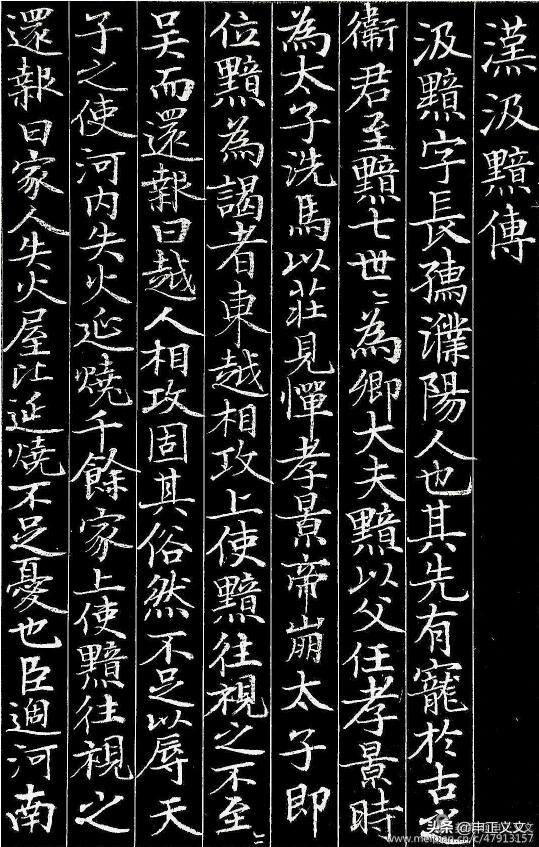 漢汲黯傳
汲黯字長孺濮陽人也其先有寵於古之
衛君至黯七世〻為卿大夫黯以父任孝景時
為太子洗馬以莊見憚孝景帝崩太子即
位黯為謁者東越相攻上使黯往視之不至〻
吴而還報曰越人相攻固其俗然不足以辱天
子之使河内失火延燒千餘家上使黯往視之
還報曰家人失火屋比延燒不足憂也臣過河南
头条@申正义文
www.meipian.cn/c/47913157